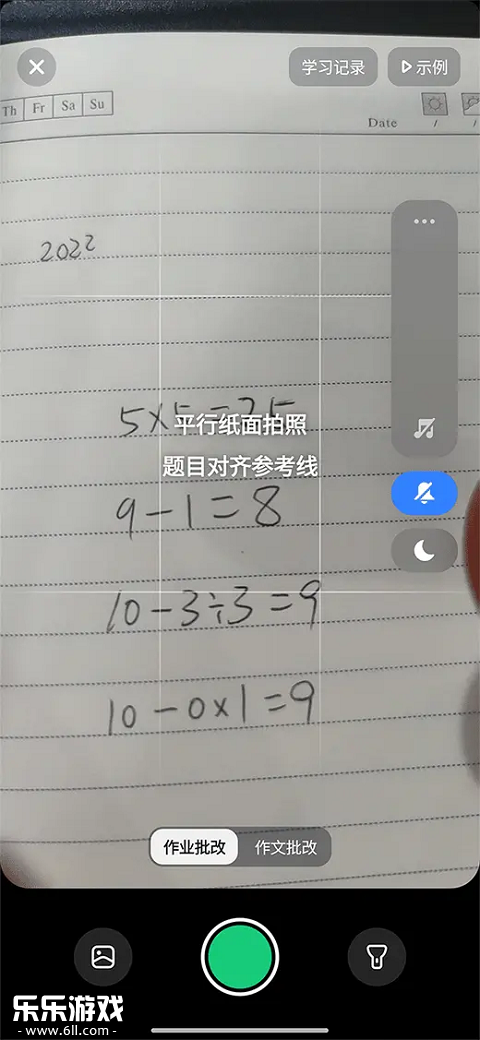 学习记录
示例
Th Fr Sa Su
Date / /
2022
5×5=25
平行纸面拍照
题目对齐参考线
9-1=8
10-3÷3=9
10-0×1=9
作业批改 作文批改
乐乐游戏
-www.6ll.com-